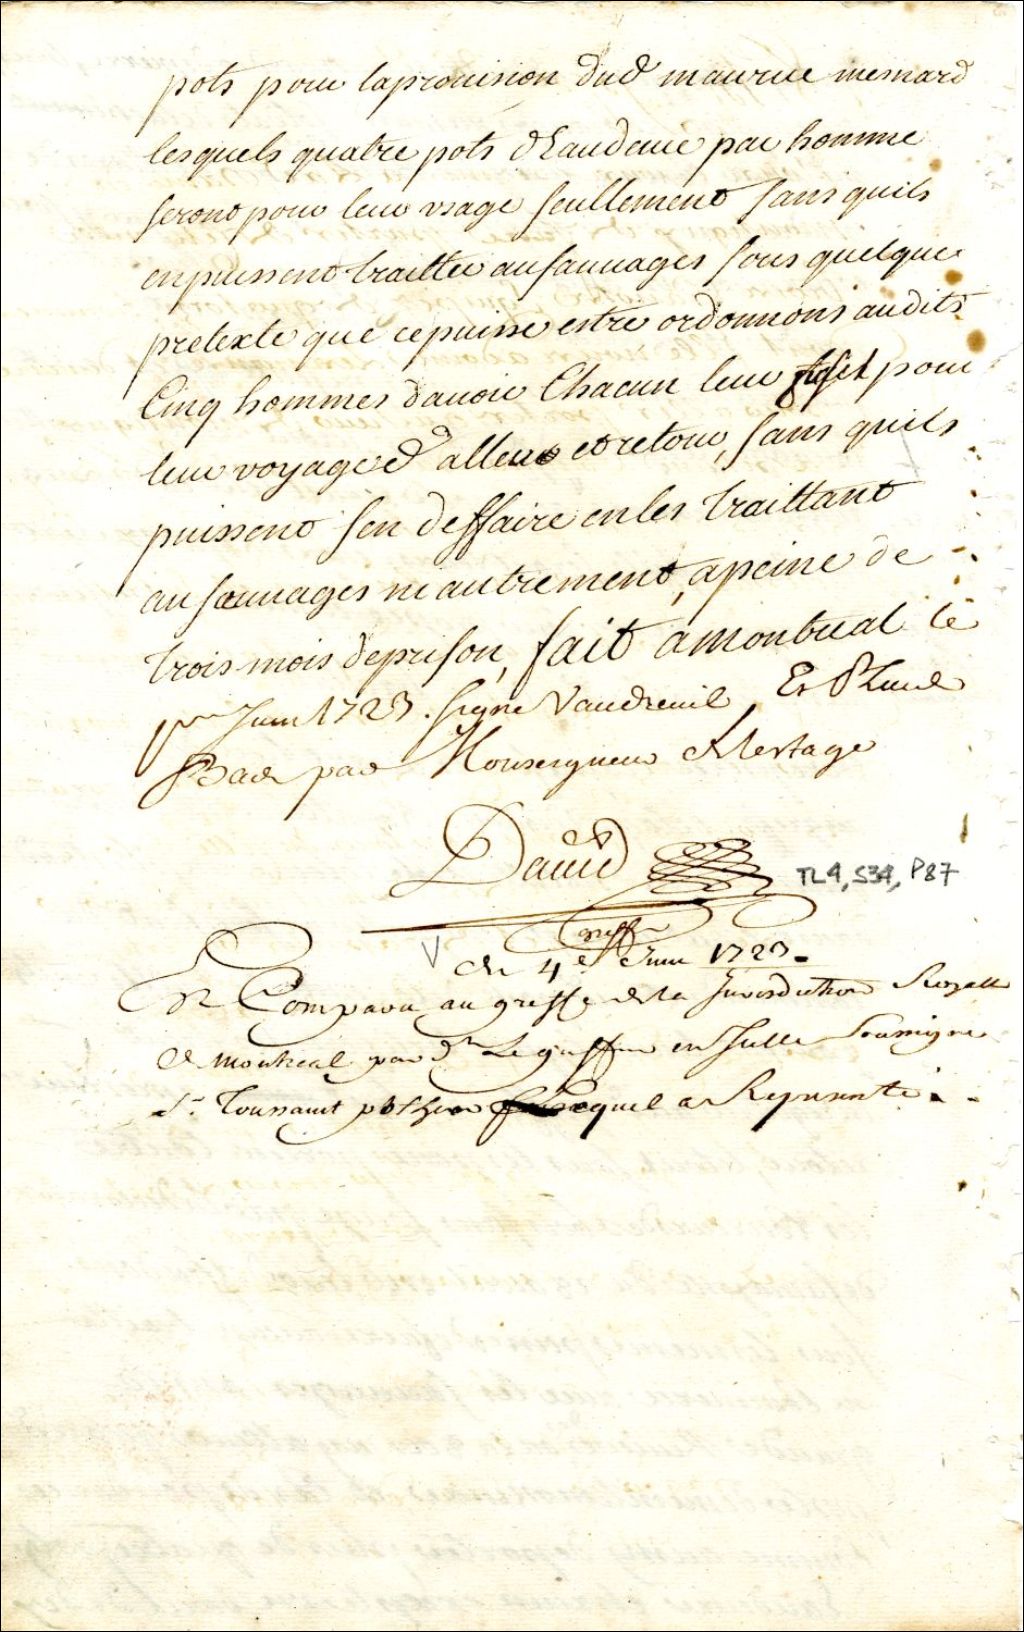 pots pour laprouision dud maurice mesnard
lesquels quatre pots dEaudeuie par homme
seront pour leur vsage seullement sans quils
enpuissent traitter ausauuages sous quelque
pretexte que cepuisse estre ordonnons audits
Cinq hommes dauoir Chacun leur fusil pour
leur voyage d aller et retour, sans quils
puissent sen deffaire enles traittant
ausauuages ni autrement, apeine de
trois mois deprison, fait amontreal le
Juin 1723. signe Vaudreuil, Et
Bas par Monseigneur de Lestage
Dauid
TL4, S34, P87
greffe
du 4e Juin 1723.
Est Comparu au greffe de la Jurisdiction Royalle
de montreal par dt Le greffier en Jcelle Soussigne
Sr. Toussaint pothier Lequel a Represente